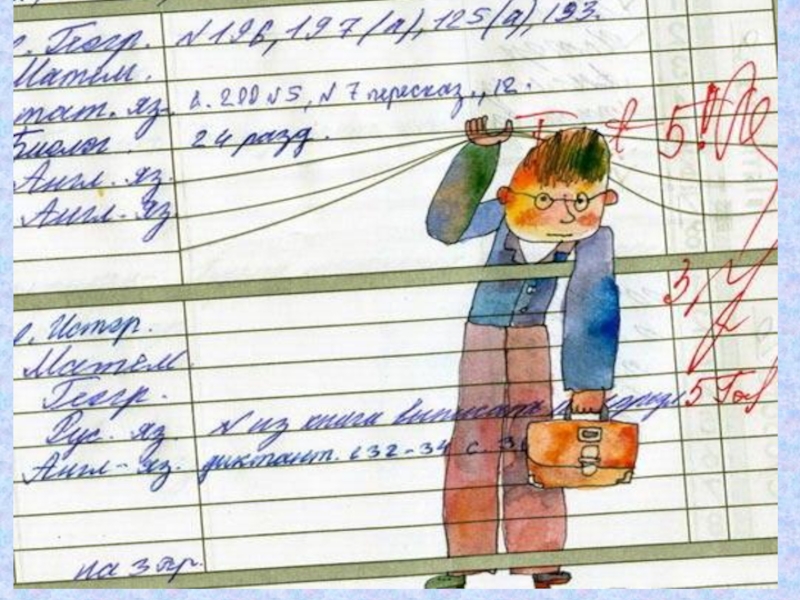 Геогр. №196, 197(а), 125(а), 193.
Матем.
тат. яз. с. 200 №5, №7 пересказ., 12.
Биолог. 24 разд.
5!!
Англ. яз.
Англ. яз
3
Истор.
Матем
Геогр.
5
Рус. яз. № из книги выписать
Англ-яз. диктант. с 32-34 с.
на 3 тр.